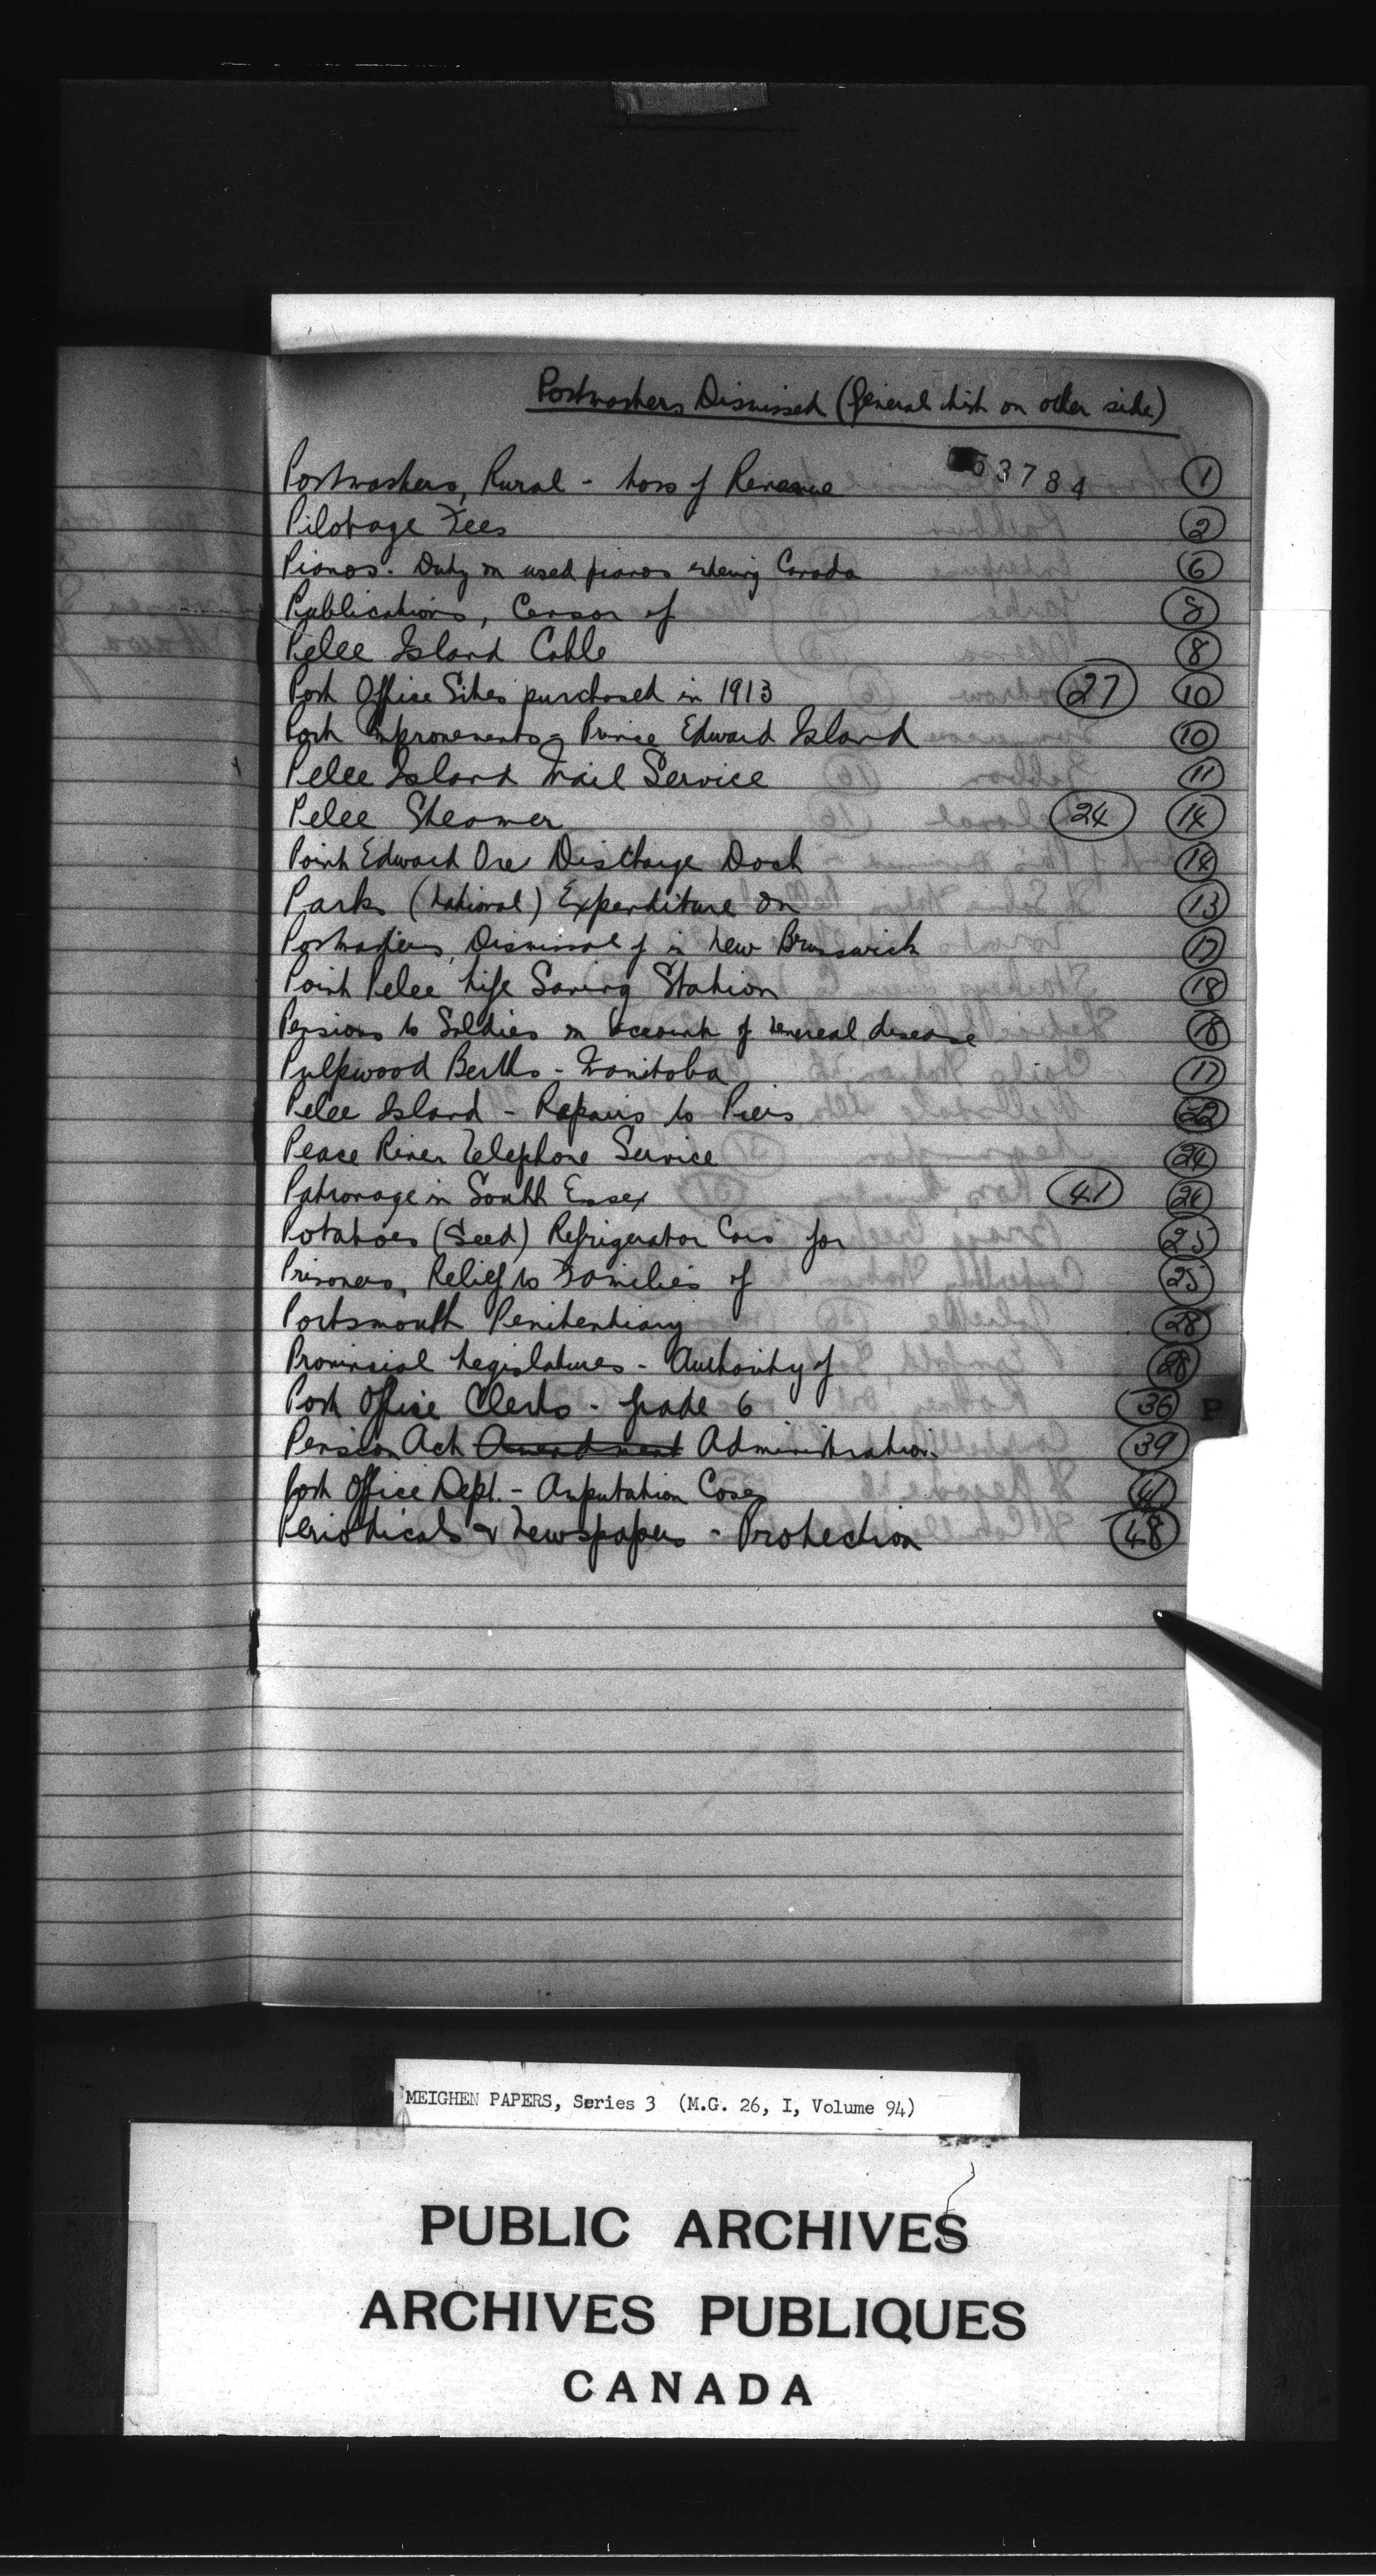 Postmasters Dismissed (General List on other side)
53784
Postmasters, Rural - Loss of Revenue 1
Pilotage Fees 2
Pianos. Duty on used pianos entering Canada 6
Publications, Censor of 8
Pelee Island Cable 8
Post Office Sites purchased in 1913 27 10
Port Improvements - Prince Edward Island 10
Pelee Island Mail Service 11
Pelee Steamer 24 14
Point Edward Ore Discharge Dock 14
Parks (National) Expenditure on 13
Postmasters, Dismissal of in New Brunswick 17
Point Pelee Life Saving Station 18
Pensions to Soldiers on account of venereal disease 18
Pulpwood Berths - Manitoba 17
Pelee Island - Repairs to Piers 22
Peace River Telephone Service 24
Patronage in South Essex 41 24
Potatoes (Seed) Refrigerator Cars for 25
Prisoners, Relief to Families of 25
Portsmouth Penitentiary 28
Provincial Legislatures - Authority of 28
Post Office Clerks - Grade 6 36
P
Pension Act Amendment Administration. 39
Post Office Dept. - Amputation Cases 41
Periodicals & Newspapers - Protection 48
MEIGHEN PAPERS, Series 3 (M.G. 26, I, Volume 94)
PUBLIC ARCHIVES
ARCHIVES PUBLIQUES
CANADA